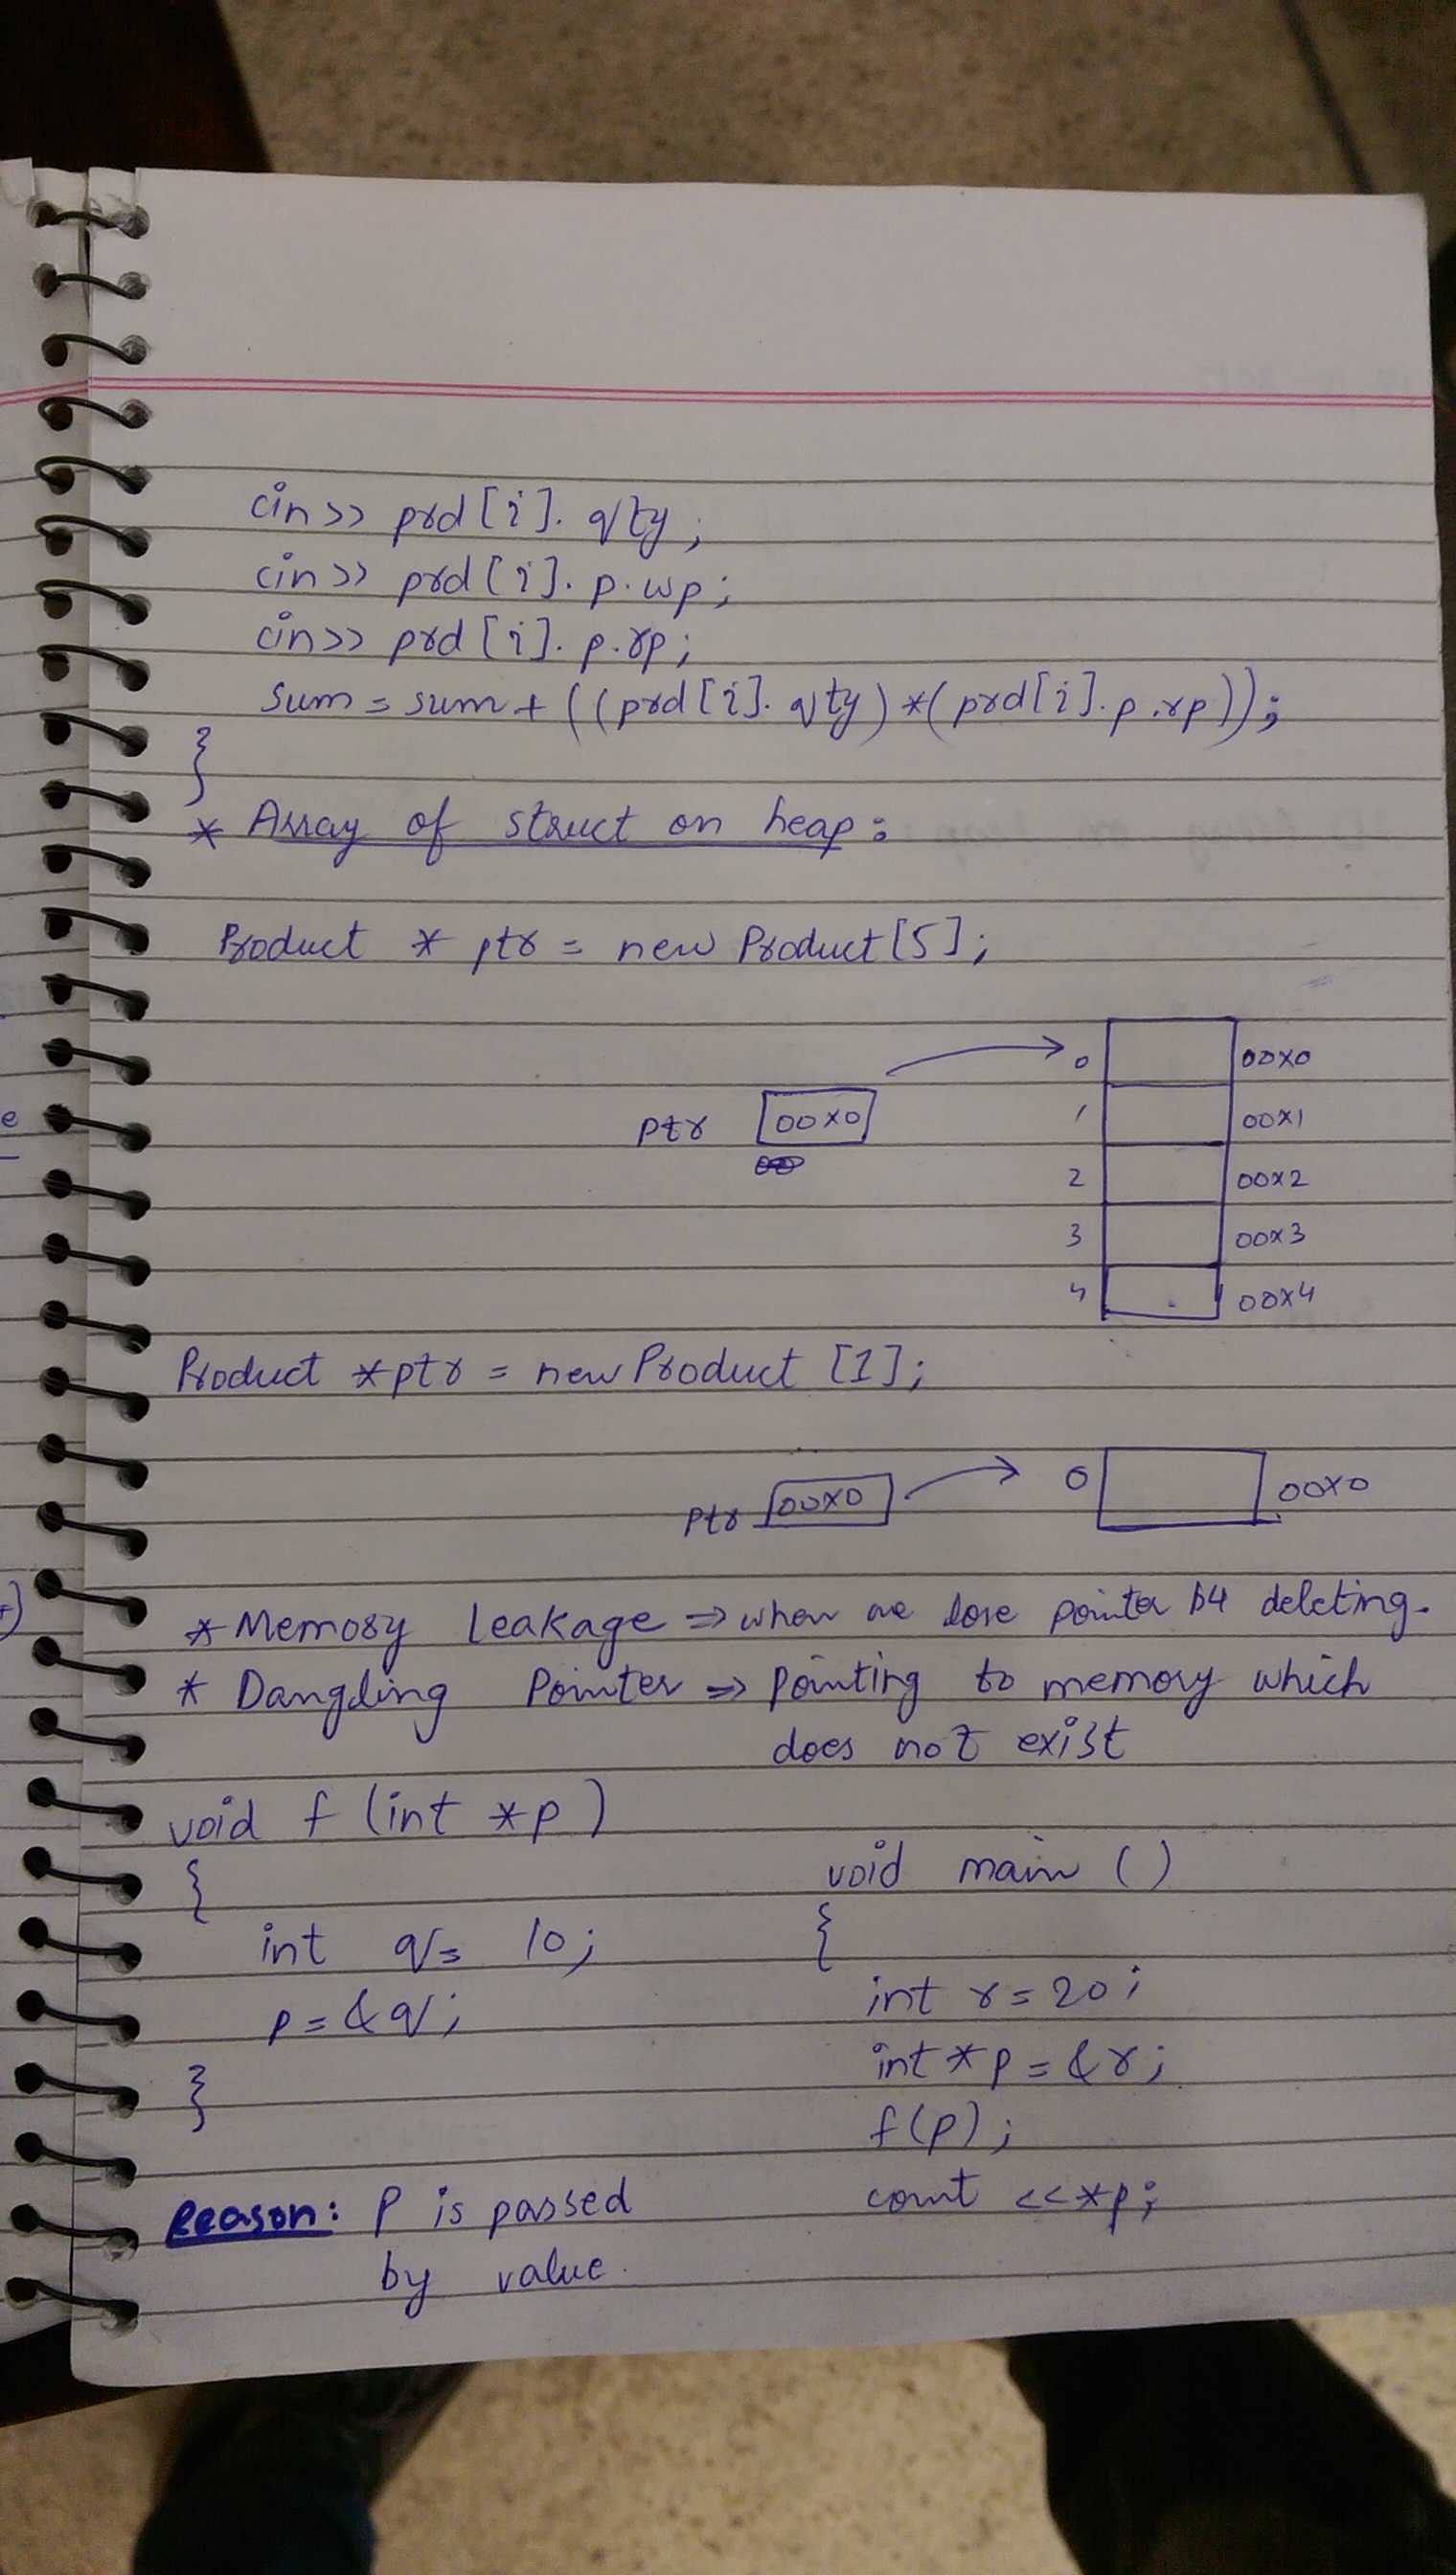 cin>> prd[i].qty;
cin>> prd[i].p.wp;
cin>> prd[i].p.rp;
sum = sum + ((prd[i].qty)*(prd[i].p.rp));
}
* Array of struct on heap:
Product * ptr = new Product[5];
0 00x0
ptr 00x0 1 00x1
2 00x2
3 00x3
4 00x4
Product *ptr = new Product [1];
ptr 00x0 0 00x0
* Memory Leakage => when we lose pointer b4 deleting.
* Dangling Pointer => Pointing to memory which
does not exist
void f (int *p)
{
int q = 10;
p = &q;
}
Reason: P is passed
by value.
void main ()
{
int r = 20;
int *p = &r;
f(p);
cout <<*p;